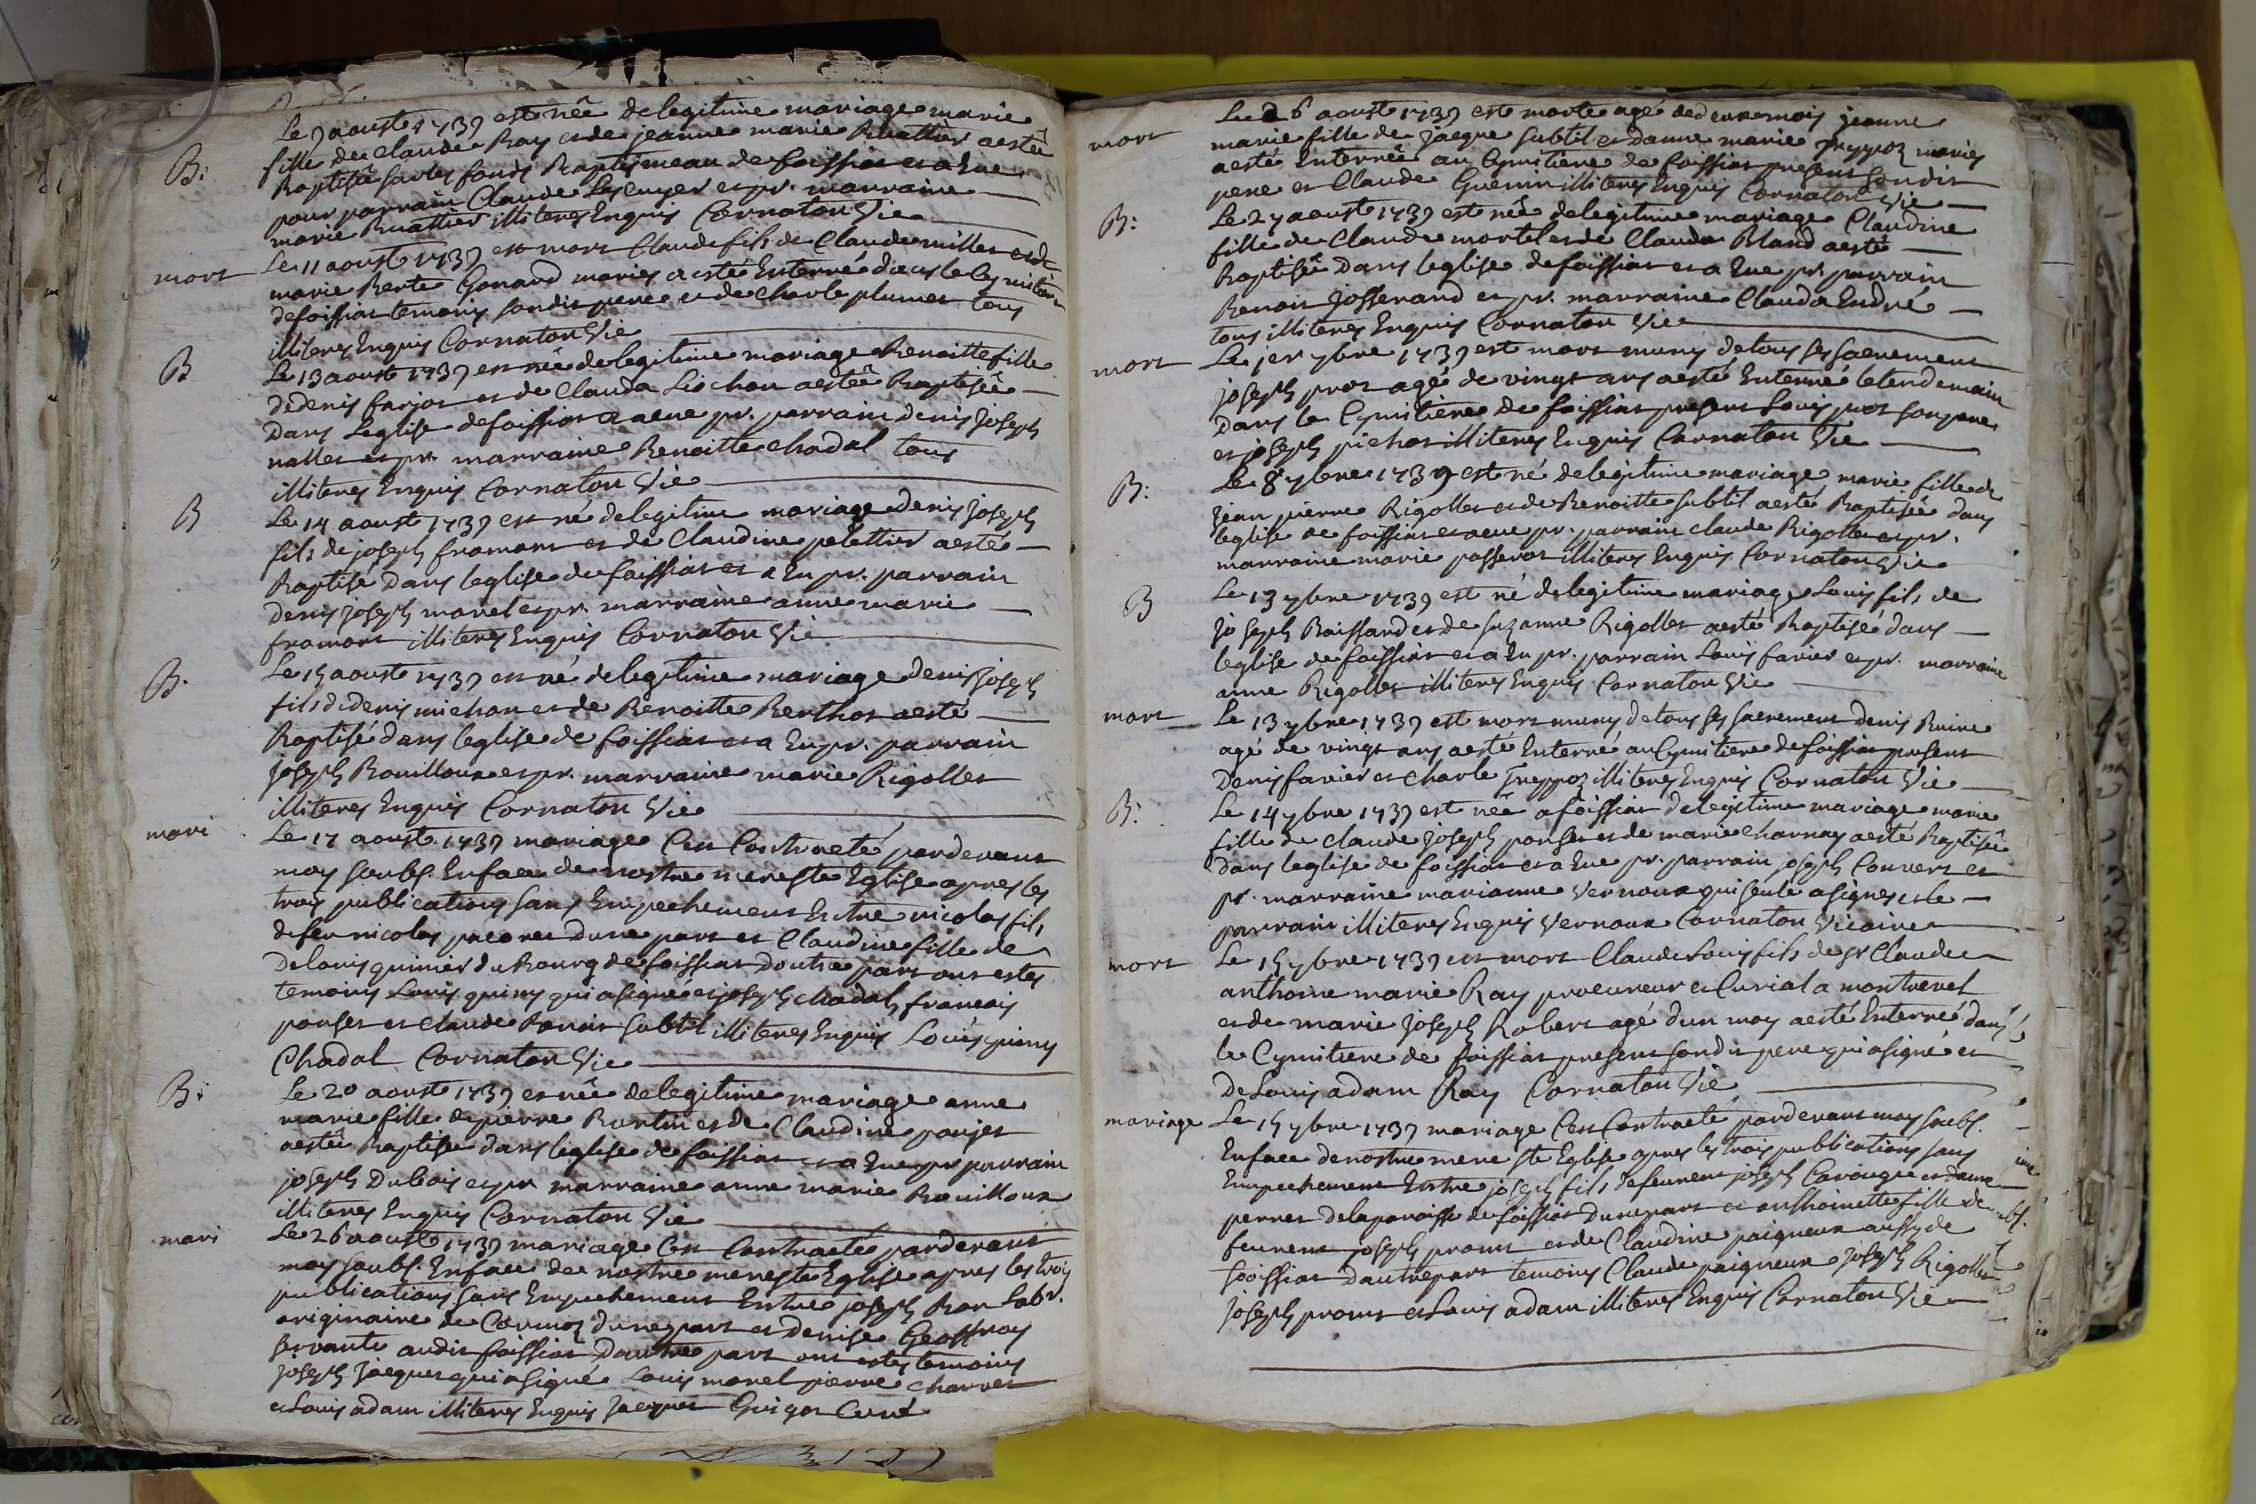 Le 9 aoust 1739 est née de legitime mariage marie
B: fille de Claude Ray et de jeanne marie Buattier aesté
Baptisée sur les fonds Baptismeau de foissiat et a Eue
pour parrain Claude Lescuyer et pr. marraine
marie Buattier illiteres Enquis Cornaton Vic
mort Le 11 aoust 1739 est mort Claude fils de Claude millet et de
marie Berte Gonard mariés a esté Enterré dans le Cymitiere
de foissiat temoins sondit pere et de charle plumet tous
illiteres Enquis Cornaton Vic
B Le 13 aoust 1739 est née de legitime mariage Benoitte fille
de denis farjot et de Clauda Liochon aestée Baptisée
Dans Leglise de foissiat et aeue pr. parrain denis Joseph
nallet et pr. marraine Benoitte chadal tous
illiteres Enquis Cornaton Vic
B Le 14 aoust 1739 est né de legitime mariage denis Joseph
fils de joseph fromont et de Claudine pelettier aesté
Baptisé Dans leglise de foissiat et a Eu pr. parrain
denis Joseph morel et pr. marraine anne marie
fromont illiteres Enquis Cornaton Vic
B. Le 15 aoust 1739 est né de legitime mariage denis Joseph
fils de denis michon et de Benoitte Berthot aesté
Baptisé dans leglise de foissiat et a Eu pr. parrain
Joseph Bouilloux et pr. marraine marie Rigollet
illiteres Enquis Cornaton Vic
mari Le 17 aoust 1739 mariage Cest Contracté pardevant
moy soubs. Enface de nostre mere ste Eglise apres les
trois publications sans Empechement Entre nicolas fils
de feu nicolas pacoret dune part et Claudine fille de
De louis quinier du Bourg de foissiat doutre part ont estés
temoins Louis quiny qui asigné et joseph chadal, francois
ponset et Claude Benoit subtil illiteres Enquis Louis quiny
Chadal Cornaton Vic
B: Le 20 aoust 1739 est née de legitime mariage anne
marie fille de pierre Bontin et de Claudine ponjet
aestée Baptisée dans leglise de foissiat et a Eue pr. parrain
joseph Dubois et pr. marraine anne marie Bouilloux
illiteres Enquis Cornaton Vic
mari Le 26 aoust 1739 mariage Cest Contracté pardevant
moy soubs. Enface de nostre mere ste Eglise apres les trois
publications sans Empechement Entre joseph Bon Labr.
originaire de Cormoz dune part et denise Geoffray
servante audit foissiat Dautre part ont estés temoins
Joseph Jacquet qui asigné Louis morel pierre charvet
et Louis adam illiteres Enquis Jacquet Guigot Curé
mort Le 26 aoust 1739 est morte agé de deux mois jeanne
marie fille de jacque subtil et danne marie freppoz mariés
aesté Enterrée au Cymitiere de foissiat present sondit
pere et Claude Guerin illiteres Enquis Cornaton Vic
B: Le 27 aoust 1739 est née de legitime mariage Claudine
fille de Claude mortel et de Clauda Bland aesté
Baptisée Dans leglise de foissiat et a Eue pr. parrain
Benoit Josserand et pr. marraine Clauda Endré
tous illiteres Enquis Cornaton Vic
mort Le jer 7bre 1739 est mort muny de tous ses sacrement
joseph prot agé de vingt ans aesté Enterré le lendemain
Dans le Cymitiere de foissiat present Louis prot son pere
et joseph pichot illiteres Enquis Cornaton Vic
B: Le 8 7bre 1739 est né de legitime mariage marie fille de
Jean pierre Rigollet et de Benoitte subtil aesté Baptisée dans
leglise de foissiat et aeue pr. parrain claude Rigollet et pr.
marraine marie passerat illiteres Enquis Cornaton Vic
B Le 13 7bre 1739 est né de legitime mariage Louis fils de
Joseph Boissard et de suzanne Rigollet aesté Baptisé dans
leglise de foissiat et a Eu pr. parrain Louis favier et pr. marraine
anne Rigollet illiteres Enquis Cornaton Vic
mort Le 13 7bre 1739 est mort muny de tous ses sacrement denis Buine
agé de vingt ans aesté Enterré au Cymitiere de foissiat present
Denis favier et charle freppoz illiteres Enquis Cornaton Vic
B: Le 14 7bre 1739 est née a foissiat de legitime mariage marie
fille de Claude Joseph ponset et de marie charnay aesté Baptisée
dans leglise de foissiat et a Eue pr. parrain joseph Convert et
pr. marraine marianne Vernoux qui seule asignes et le
parrain illiteres Enquis Vernoux Cornaton Vicaire
mort Le 15 7bre 1739 est mort Claude Louis fils de sr Claude
anthoine marie Ray procureur et Curial a montrevel
et de marie joseph Robert agé dun moy aesté Enterré dans
le Cymitiere de foissiat present sondit pere qui asigné et
de Louis adam Ray Cornaton Vic
mariage Le 15 7bre 1739 mariage Cest Contracté pardevant moy soubs.
Enface de nostre mere ste Eglise apres les trois publications sans
Empechement Entre joseph fils de feu joseph Carouge et danne
perret de la paroisse de foissiat dune part et anthoinette fille de
feu joseph promt et de Claudine paigneux aussy de
foissiat dautre part temoins Claude paigneux joseph Rigollet
Joseph promt et Louis adam illiteres Enquis Cornaton Vic